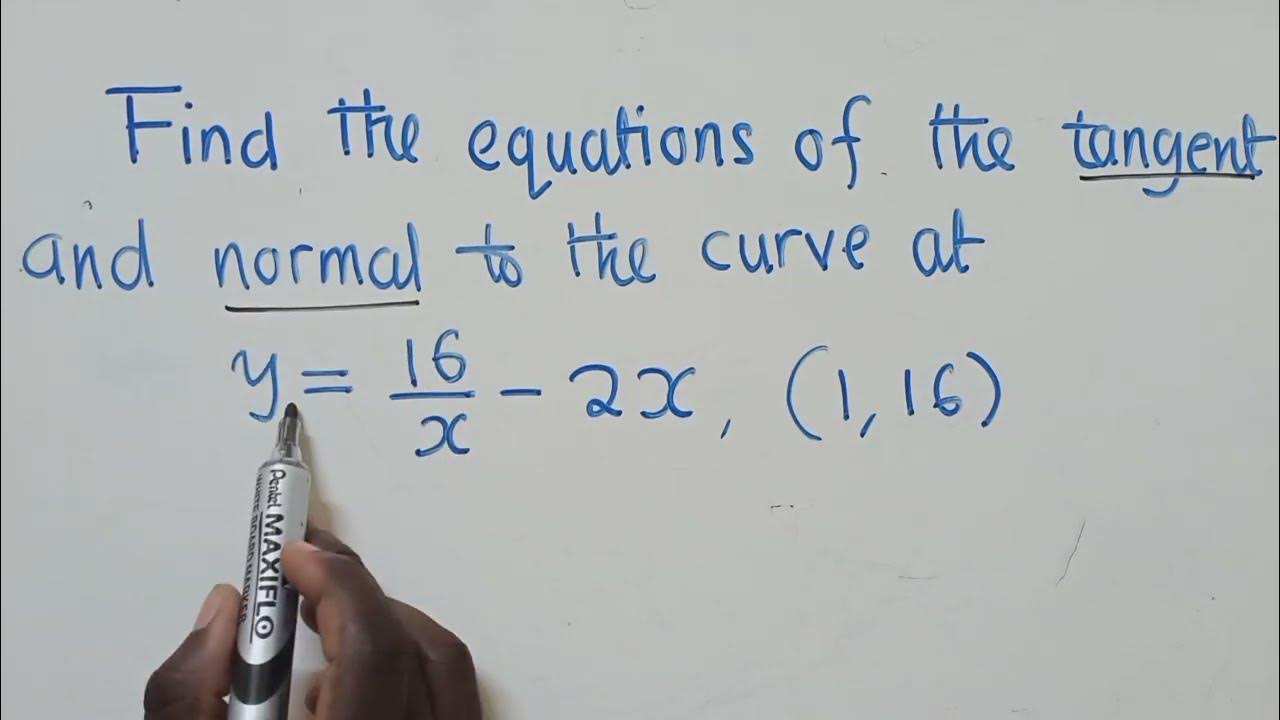 Find the equations of the tangent
and normal to the curve at
y = 16/x - 2x, (1, 16)
Pentel MAXIFLO
WHITEBOARD MARKER